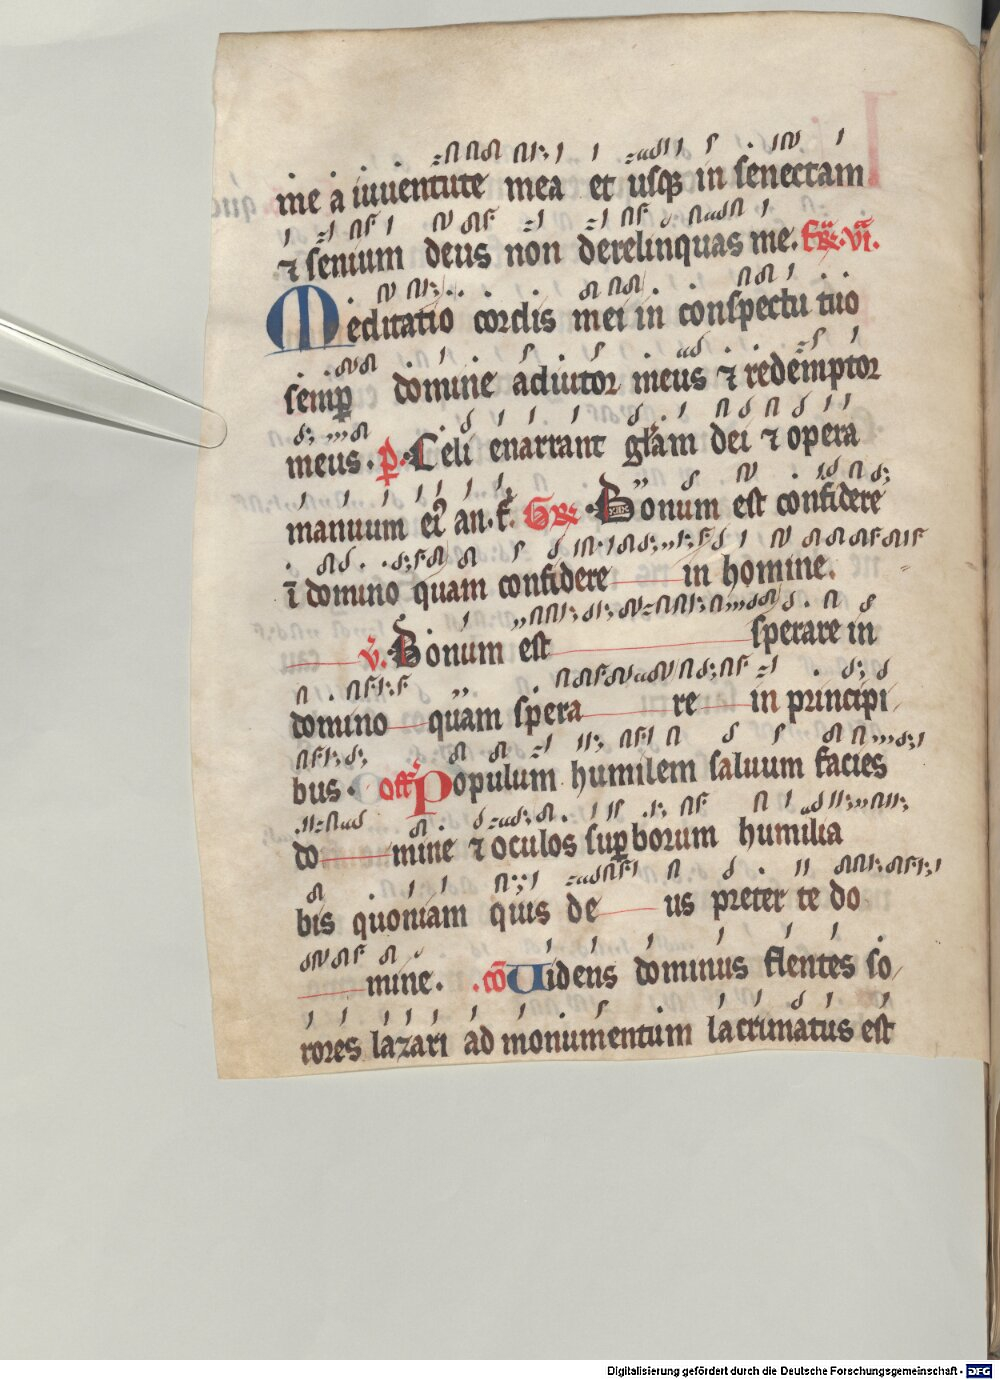 me a iuuentute mea et usqꝫ in senectam
⁊ senium deus non derelinquas me. fr̄. vi.
Meditatio cordis mei in conspectu tuo
semꝑ domine adiutor meus ⁊ redemptor
meus. p̄. Celi enarrant gl̄am dei ⁊ opera
manuum eiꝰ an. f. Gr̄. Bonum est confidere
ī domino quam confidere in homine.
v̄. Bonum est sperare in
domino quam spera re in principi
bus. off Populum humilem saluum facies
do mine ⁊ oculos suꝑborum humilia
bis quoniam quis de us preter te do
mine. .cō Uidens dominus flentes so
rores lazari ad monumentum lacrimatus est
Digitalisierung gefördert durch die Deutsche Forschungsgemeinschaft - DFG